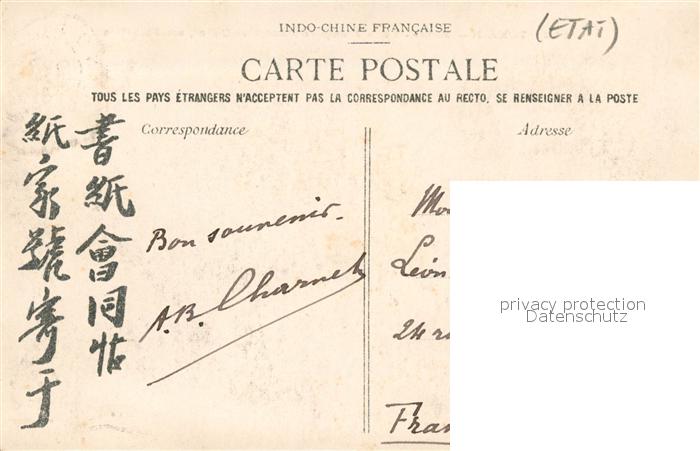 INDO-CHINE FRANÇAISE
(ETAT)
CARTE POSTALE
TOUS LES PAYS ÉTRANGERS N'ACCEPTENT PAS LA CORRESPONDANCE AU RECTO. SE RENSEIGNER A LA POSTE
Correspondance
Adresse
書紙會同帖
紙家號寄于
Bon souvenir.
A.R. Charnet
Léon
24
privacy protection
Datenschutz